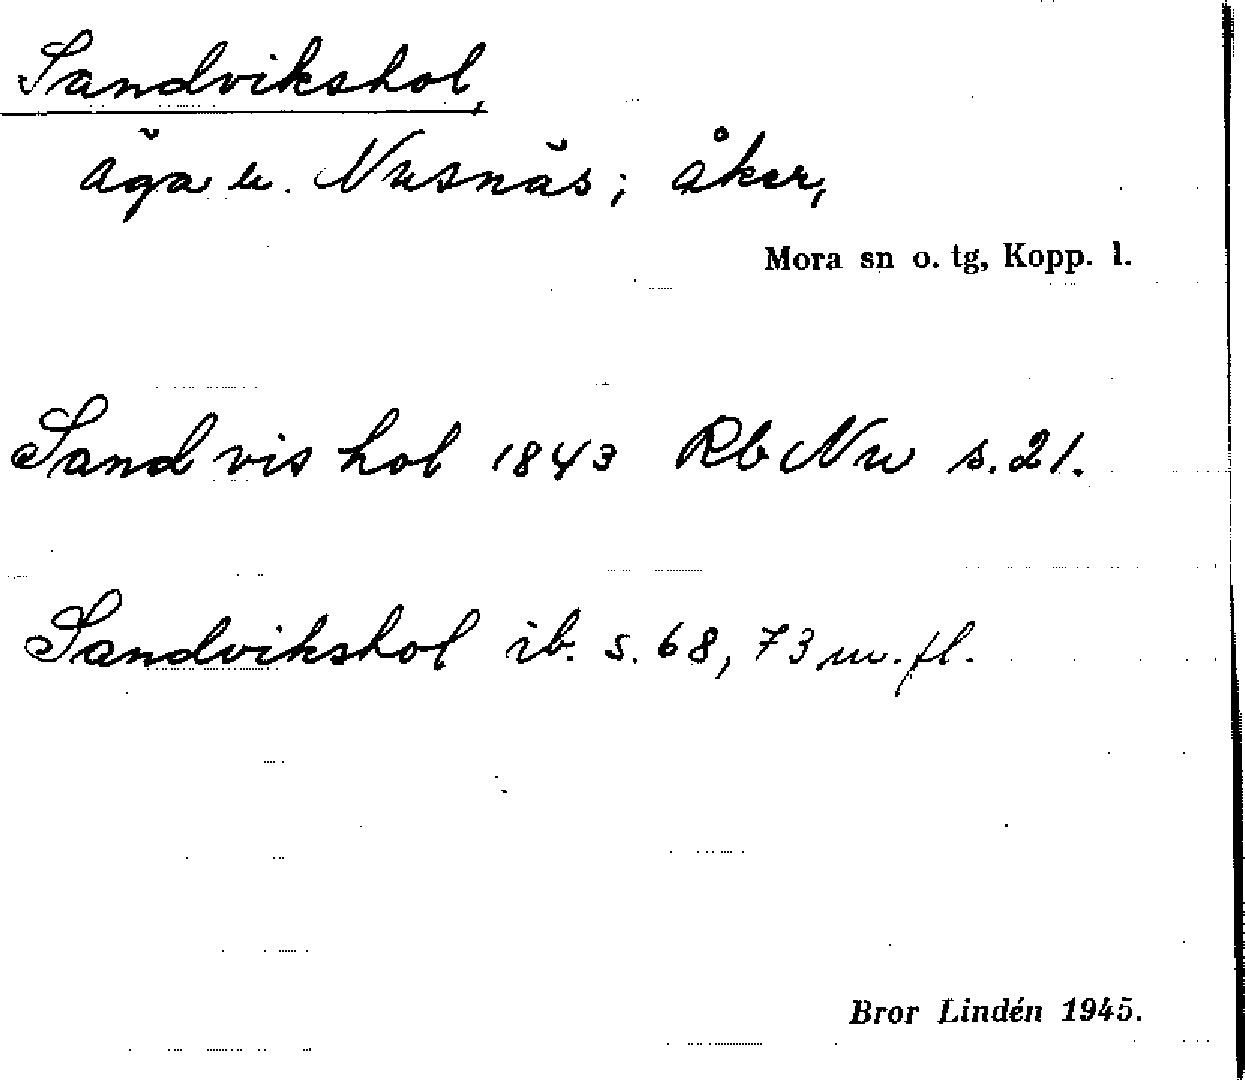 Sandvikshol,
äga u. Nusnäs; åker,
Mora sn o. tg, Kopp. l.
Sandvishol 1843 Rb Nu s. 21.
Sandvikshol ib. s. 68, 73 m. fl.
Bror Lindén 1945.